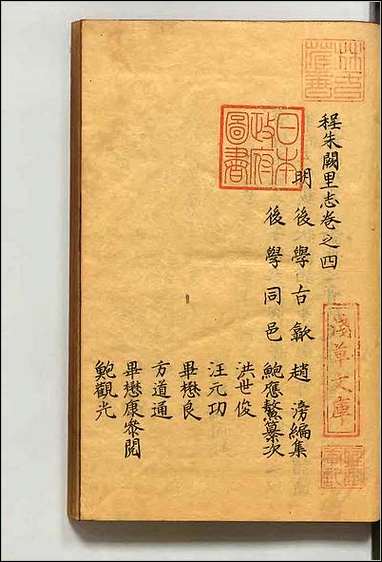 程朱闕里志卷之四
明後學古歙趙滂編集
後學同邑鮑應鰲纂次
洪世俊
汪元功
畢懋良
方道通
畢懋康叅閱
鮑觀光
日本
政府
圖書
淺草文庫